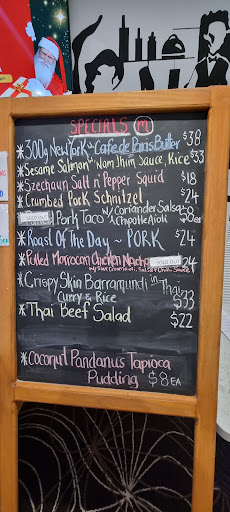 SPECIALS m
*300g New York ~ Cafe de Paris Butter $38
*Sesame Salmon w. Nam Jhim Sauce, Rice $33
*Szechaun Salt n' Pepper Squid $18
*Crumbed Pork Schnitzel $24
SOLD OUT Pork Taco w/ Coriander Salsa & Chipotle Aioli $8
*Roast Of The Day ~ PORK $24
*Pulled Moroccan Chicken Nachos SOLD OUT 24
w/ Sour Cream, Salsa & Chilli Sauce
*Crispy Skin Barramundi in Thai
Curry & Rice $33
*Thai Beef Salad $22
*Coconut Pandanus Tapioca
Pudding $8 EA